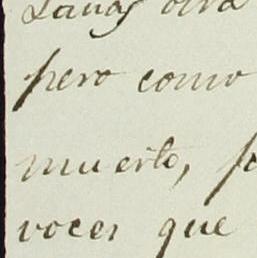 otra
pero como
muerto,
voces que